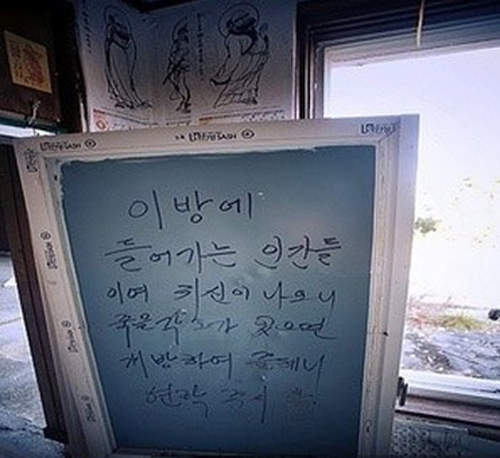 이 방에
들어가는 인간들
이여 귀신이 나오니
죽을 각오가 있으면
개방하여 줄테니
연락 주시